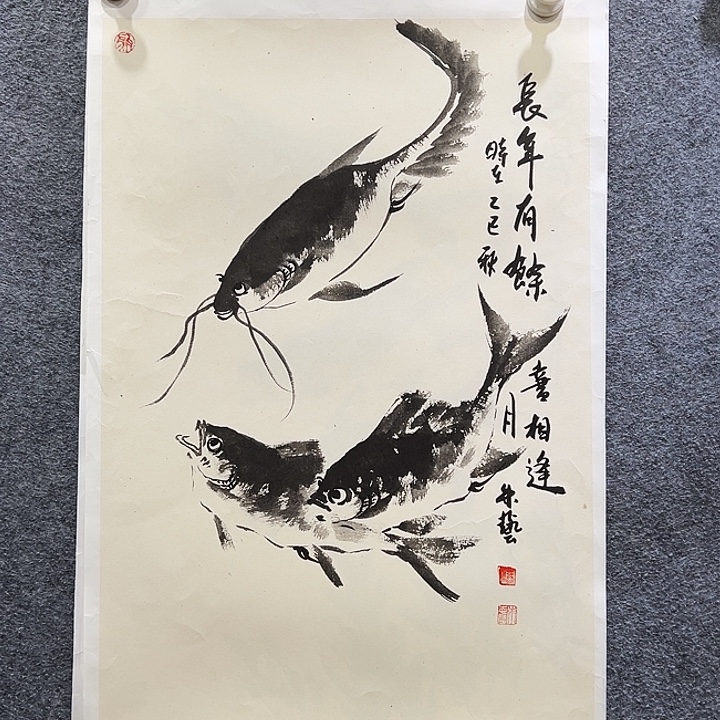 長年有餘
喜相逢
時在乙巳秋
月朱藝